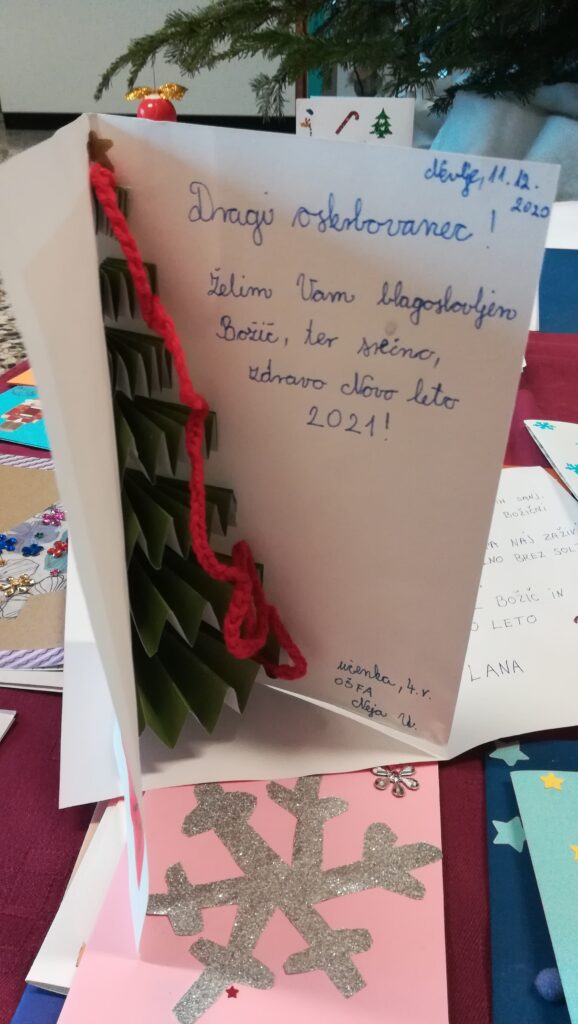 Nevlje, 11.12.
2020
Dragi oskrbovanec!
Želim Vam blagoslovljen
Božič, ter srečno,
zdravo Novo leto
2021!
učenka, 4.r.
OŠFA
Neja U.
IN SANJ.
BOŽIČNI
NAJ ZAŽIV
BREZ SOL
BOŽIČ IN
LETO
LANA